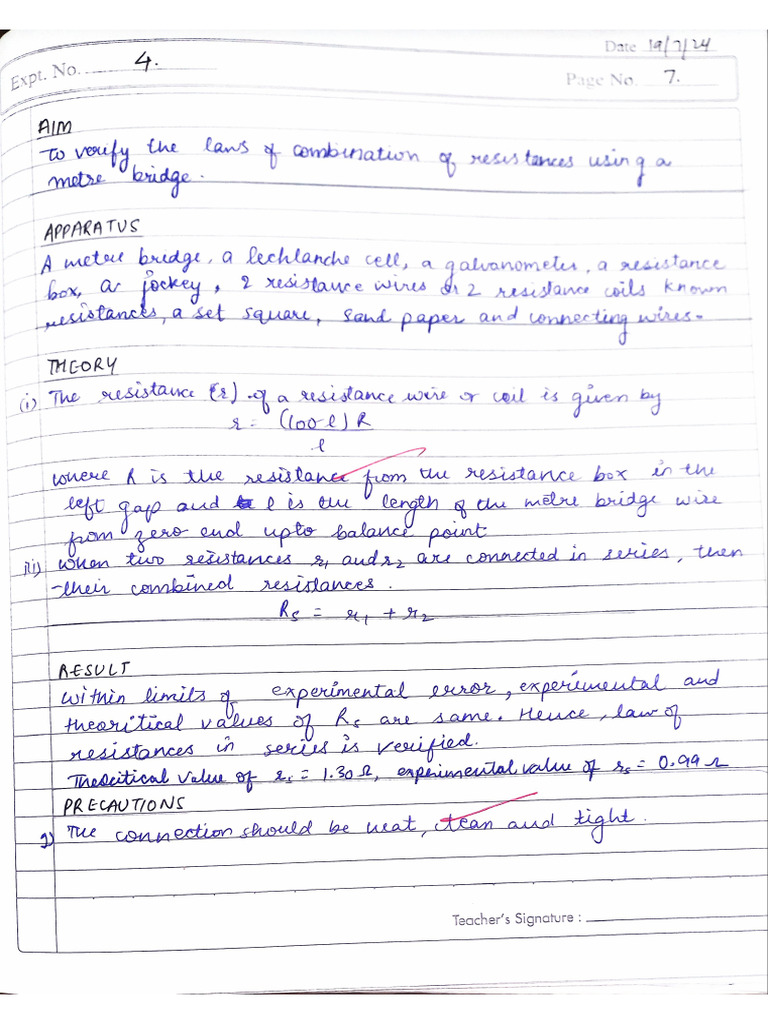 Date 19/7/24
Expt. No. 4.
Page No. 7.
AIM
To verify the laws of combination of resistances using a
metre bridge.
APPARATUS
A metre bridge, a lechlanche cell, a galvanometer, a resistance
box, a jockey, 2 resistance wires or 2 resistance coils known
resistances, a set square, sand paper and connecting wires.
THEORY
(i) The resistance (r) of a resistance wire or coil is given by
r = (100-l) R
l
where R is the resistance from the resistance box in the
left gap and l is the length of the metre bridge wire
from zero end upto balance point
ii) When two resistances r1 and r2 are connected in series, then
their combined resistances.
Rs = r1 + r2
RESULT
Within limits of experimental error, experimental and
theoritical values of Rs are same. Hence, law of
resistances in series is verified.
Theoritical value of rs = 1.30 Ω, experimental value of rs = 0.99 Ω
PRECAUTIONS
1) The connection should be neat, clean and tight.
Teacher's Signature :